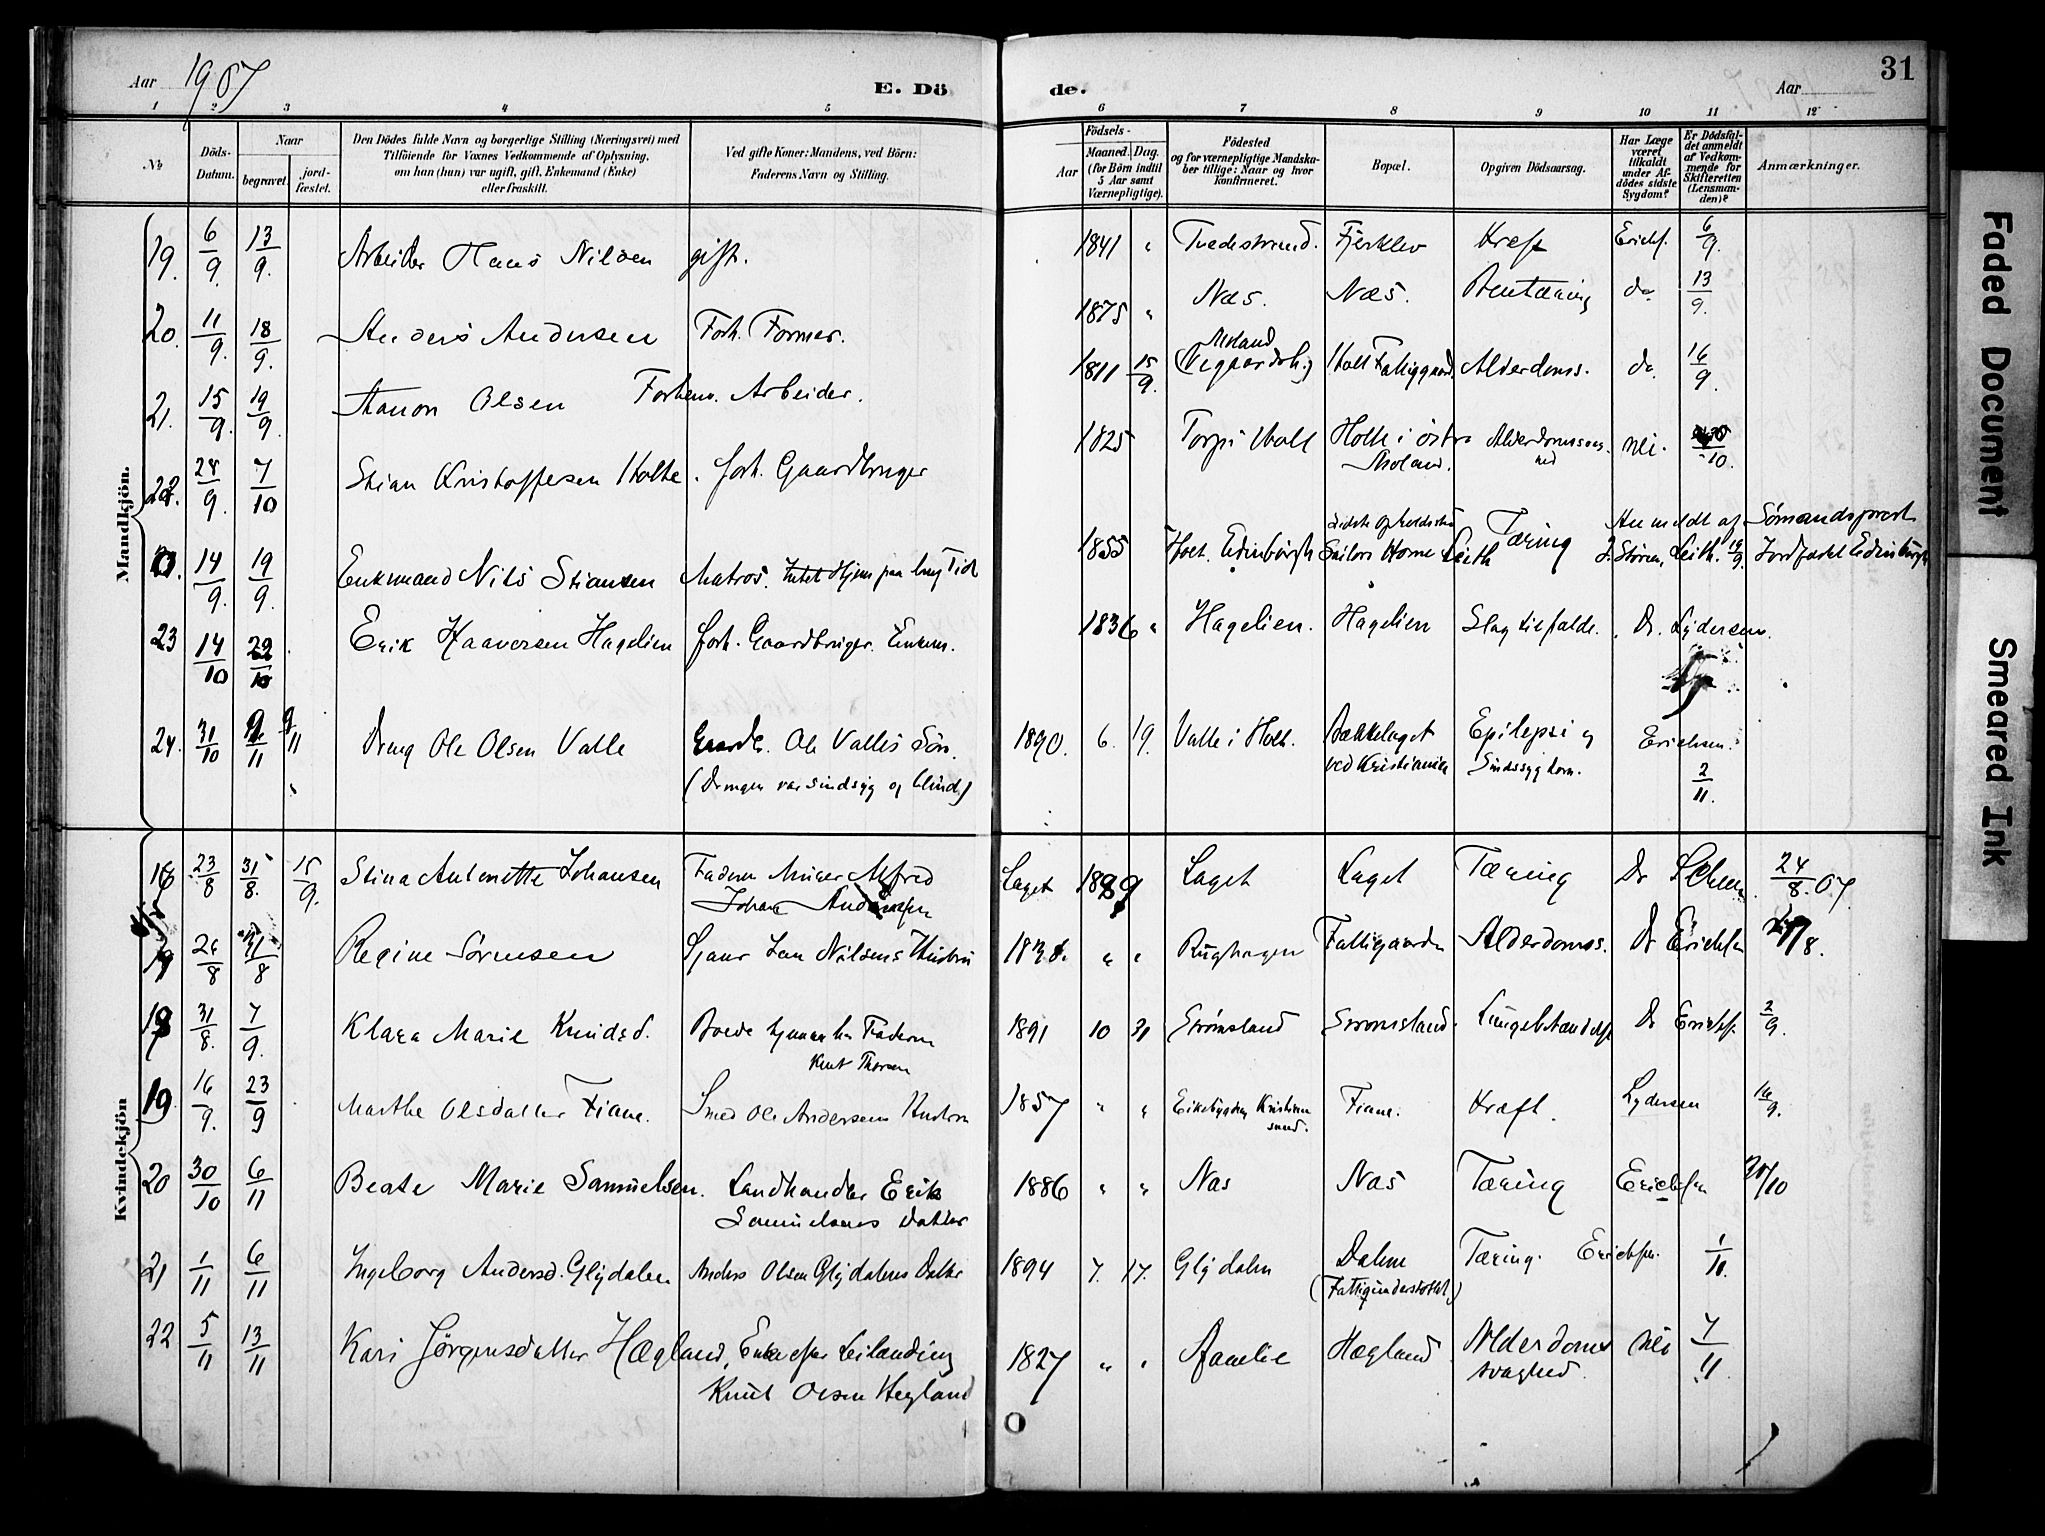 Aar 1907
E. Dö de.
Aar
31
1 2 3 4 5 6 7 8 9 10 11 12
№
Döds-Datum.
Naar
begravet.
jord-fæstet.
Den Dödes fulde Navn og borgerlige Stilling (Næringsvei) med
Tilföiende for Voxnes Vedkommende af Oplysning,
om han (hun) var ugift, gift, Enkemand (Enke)
eller fraskilt.
Ved gifte Koner: Mandens, ved Börn:
Faderens Navn og Stilling.
Födsels-
Aar
Maaned. Dag.
(for Börn indtil
5 Aar samt
Værnepligtige).
Födested
og for værnepligtige Mandska-
ber tillige: Naar og hvor
konfirmeret.
Bopæl.
Opgiven Dödsaarsag.
Har Læge
været
tilkaldt
under Af-
dödes sidste
Sygdom?
Er Dödsfal-
det anmeldt
af Vedkom-
mende for
Skifteretten
(Lensman-
den)?
Anmærkninger.
Mandkjön.
19. 6/9. 13/9. Arbeider Hans Nilsen gift. 1841 " Tvedestrand. Fjerklev Kræft Erichs. 6/9.
20. 11/9. 18/9. Anders Andersen Forh. Former. 1875 " Næs. Næs. Bentæring do. 13/9.
21. 15/9. 19/9. Aanon Olsen Forhenv. Arbeider. 1811 15/9. Moland (Vegaardsh.) Holt Fattiggaard. Alderdoms. do. 16/9.
22. 28/9. 7/10 Stian Kristoffersen Holte. forh. Gaardbruger 1825 Torp i Holt Holte i östre Moland. nei. /10.
14/9. 19/9. Enkemand Nils Stiansen Matros. Intet Hjem paa lang Tid 1855 Holt. Edinburgh Sidste Opholdssted Sailors Home Leith Tæring Anmeldt af Sömandsprest J. Stören, Leith. 19/9. Jordfæstet Edinburgh
23 14/10 22/10 Erik Haaversen Hagelien forh. Gaardbruger. Enkem. 1836 " Hagelien. Hagelien Slagtilfælde. Dr. Lydersen.
24. 31/10 9/11 9/11 Dreng Ole Olsen Valle Gaardb. Ole Valles Sön. 1890. 6. 19. Valle i Holt. Bækkelaget ved Kristiania Epilepsi og Sindssygdom. Erichsen. 2/11.
(Drengen var sindsyg og blind)
Kvindekjön
16 23/8 31/8. 15/9. Stina Antonette Johansen Faderen Murer Alfred Johan Laget 1889 Laget Laget Tæring Dr Scheen. 24/8.07.
26/8 31/8 Regine Sörensen Sjöm. Jan Nilsens Hustru " " Rughagen Fattiggaarden Alderdoms. Dr Erichsen 27/8.
18 31/8. 7/9. Klara Marie Knudsd. Faderen Knut Thorsen 1891 10 31 Strömsland Strömsland. Lungebetændelse Dr Erichs. 2/9.
19 16/9. 23/9 Marthe Olsdatter Fiane. Smed Ole Andersens Hustru 1857 " " Eikebygden Kristiansand. Fiane. Kræft. Lydersen 16/9.
20 30/10 6/11 Beate Marie Samuelsen. Landhandler Erik Samuelsens Datter 1886 " " Næs Næs Tæring Erichsen 30/10
21 1/11 6/11 Ingeborg Andersd. Glydalen Anders Olsen Glydalens Datter 1894 7. 17. Glydalen Dalene (Fattigunderstöttet) Tæring. Erichsen. 1/11.
22 5/11 13/11 Kari Jörgensdatter Hægland, Enke efter Leilænding Knut Olsen Hegland 1827 " " Aamlie Hægland Alderdoms svaghed. Nei 7/11.
Faded Document
Smeared Ink